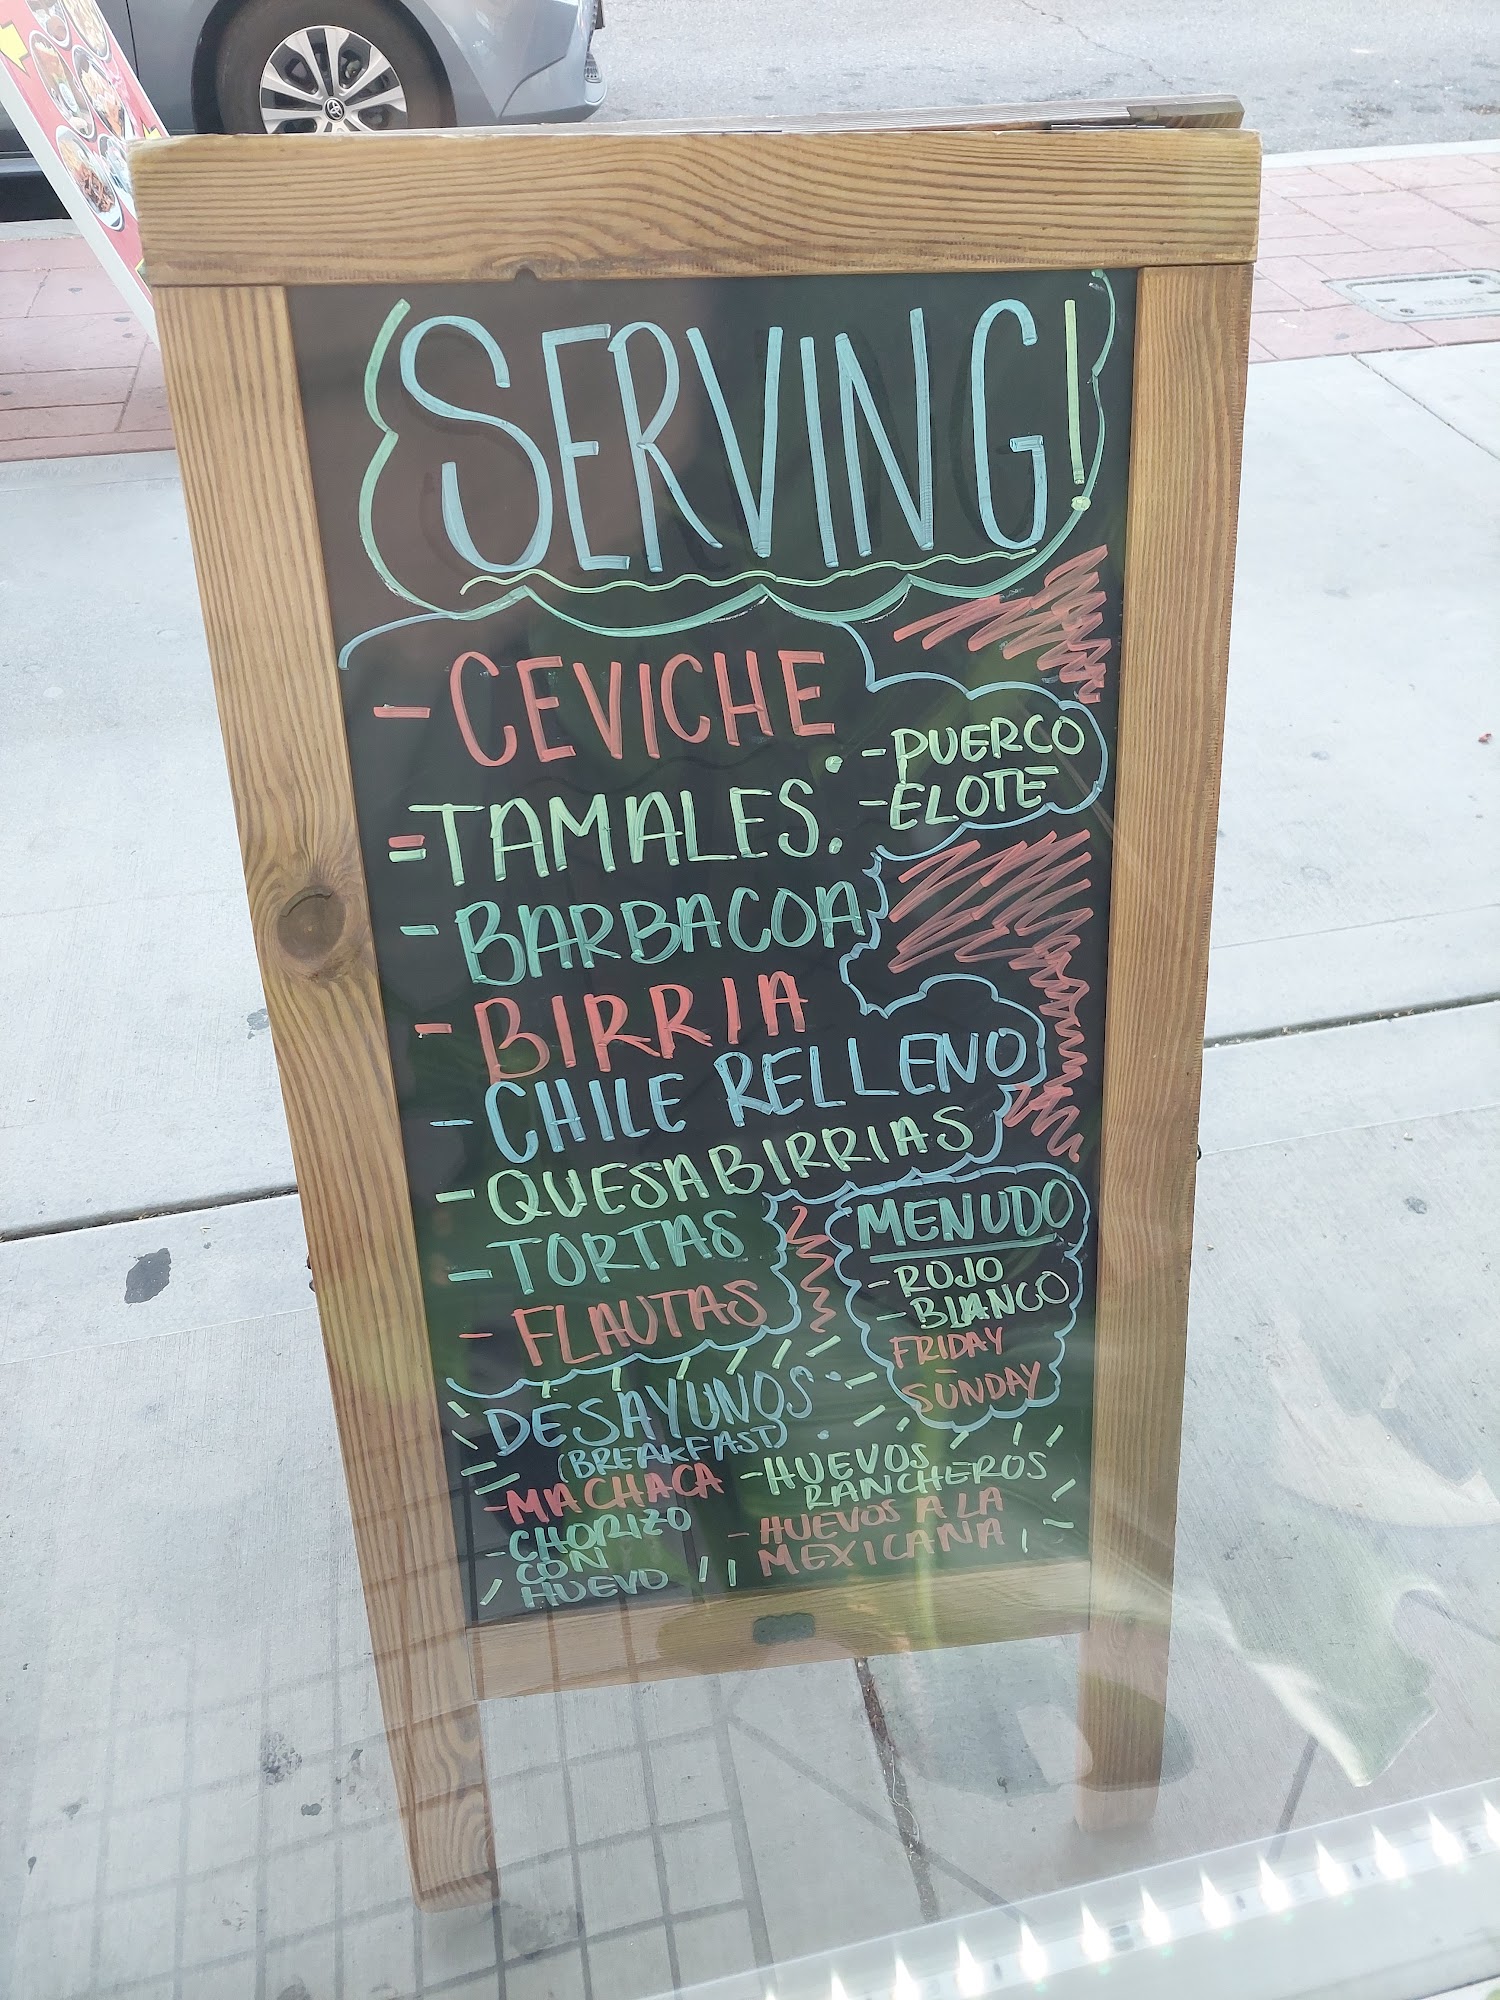 SERVING!
- CEVICHE
- TAMALES:
- PUERCO
- ELOTE
- BARBACOA
- BIRRIA
- CHILE RELLENO
- QUESABIRRIAS
- TORTAS
- FLAUTAS
MENUDO
- ROJO
- BLANCO
FRIDAY
-
SUNDAY
DESAYUNOS:
(BREAKFAST)
- MACHACA
- CHORIZO
CON
HUEVO
- HUEVOS
RANCHEROS
- HUEVOS A LA
MEXICANA